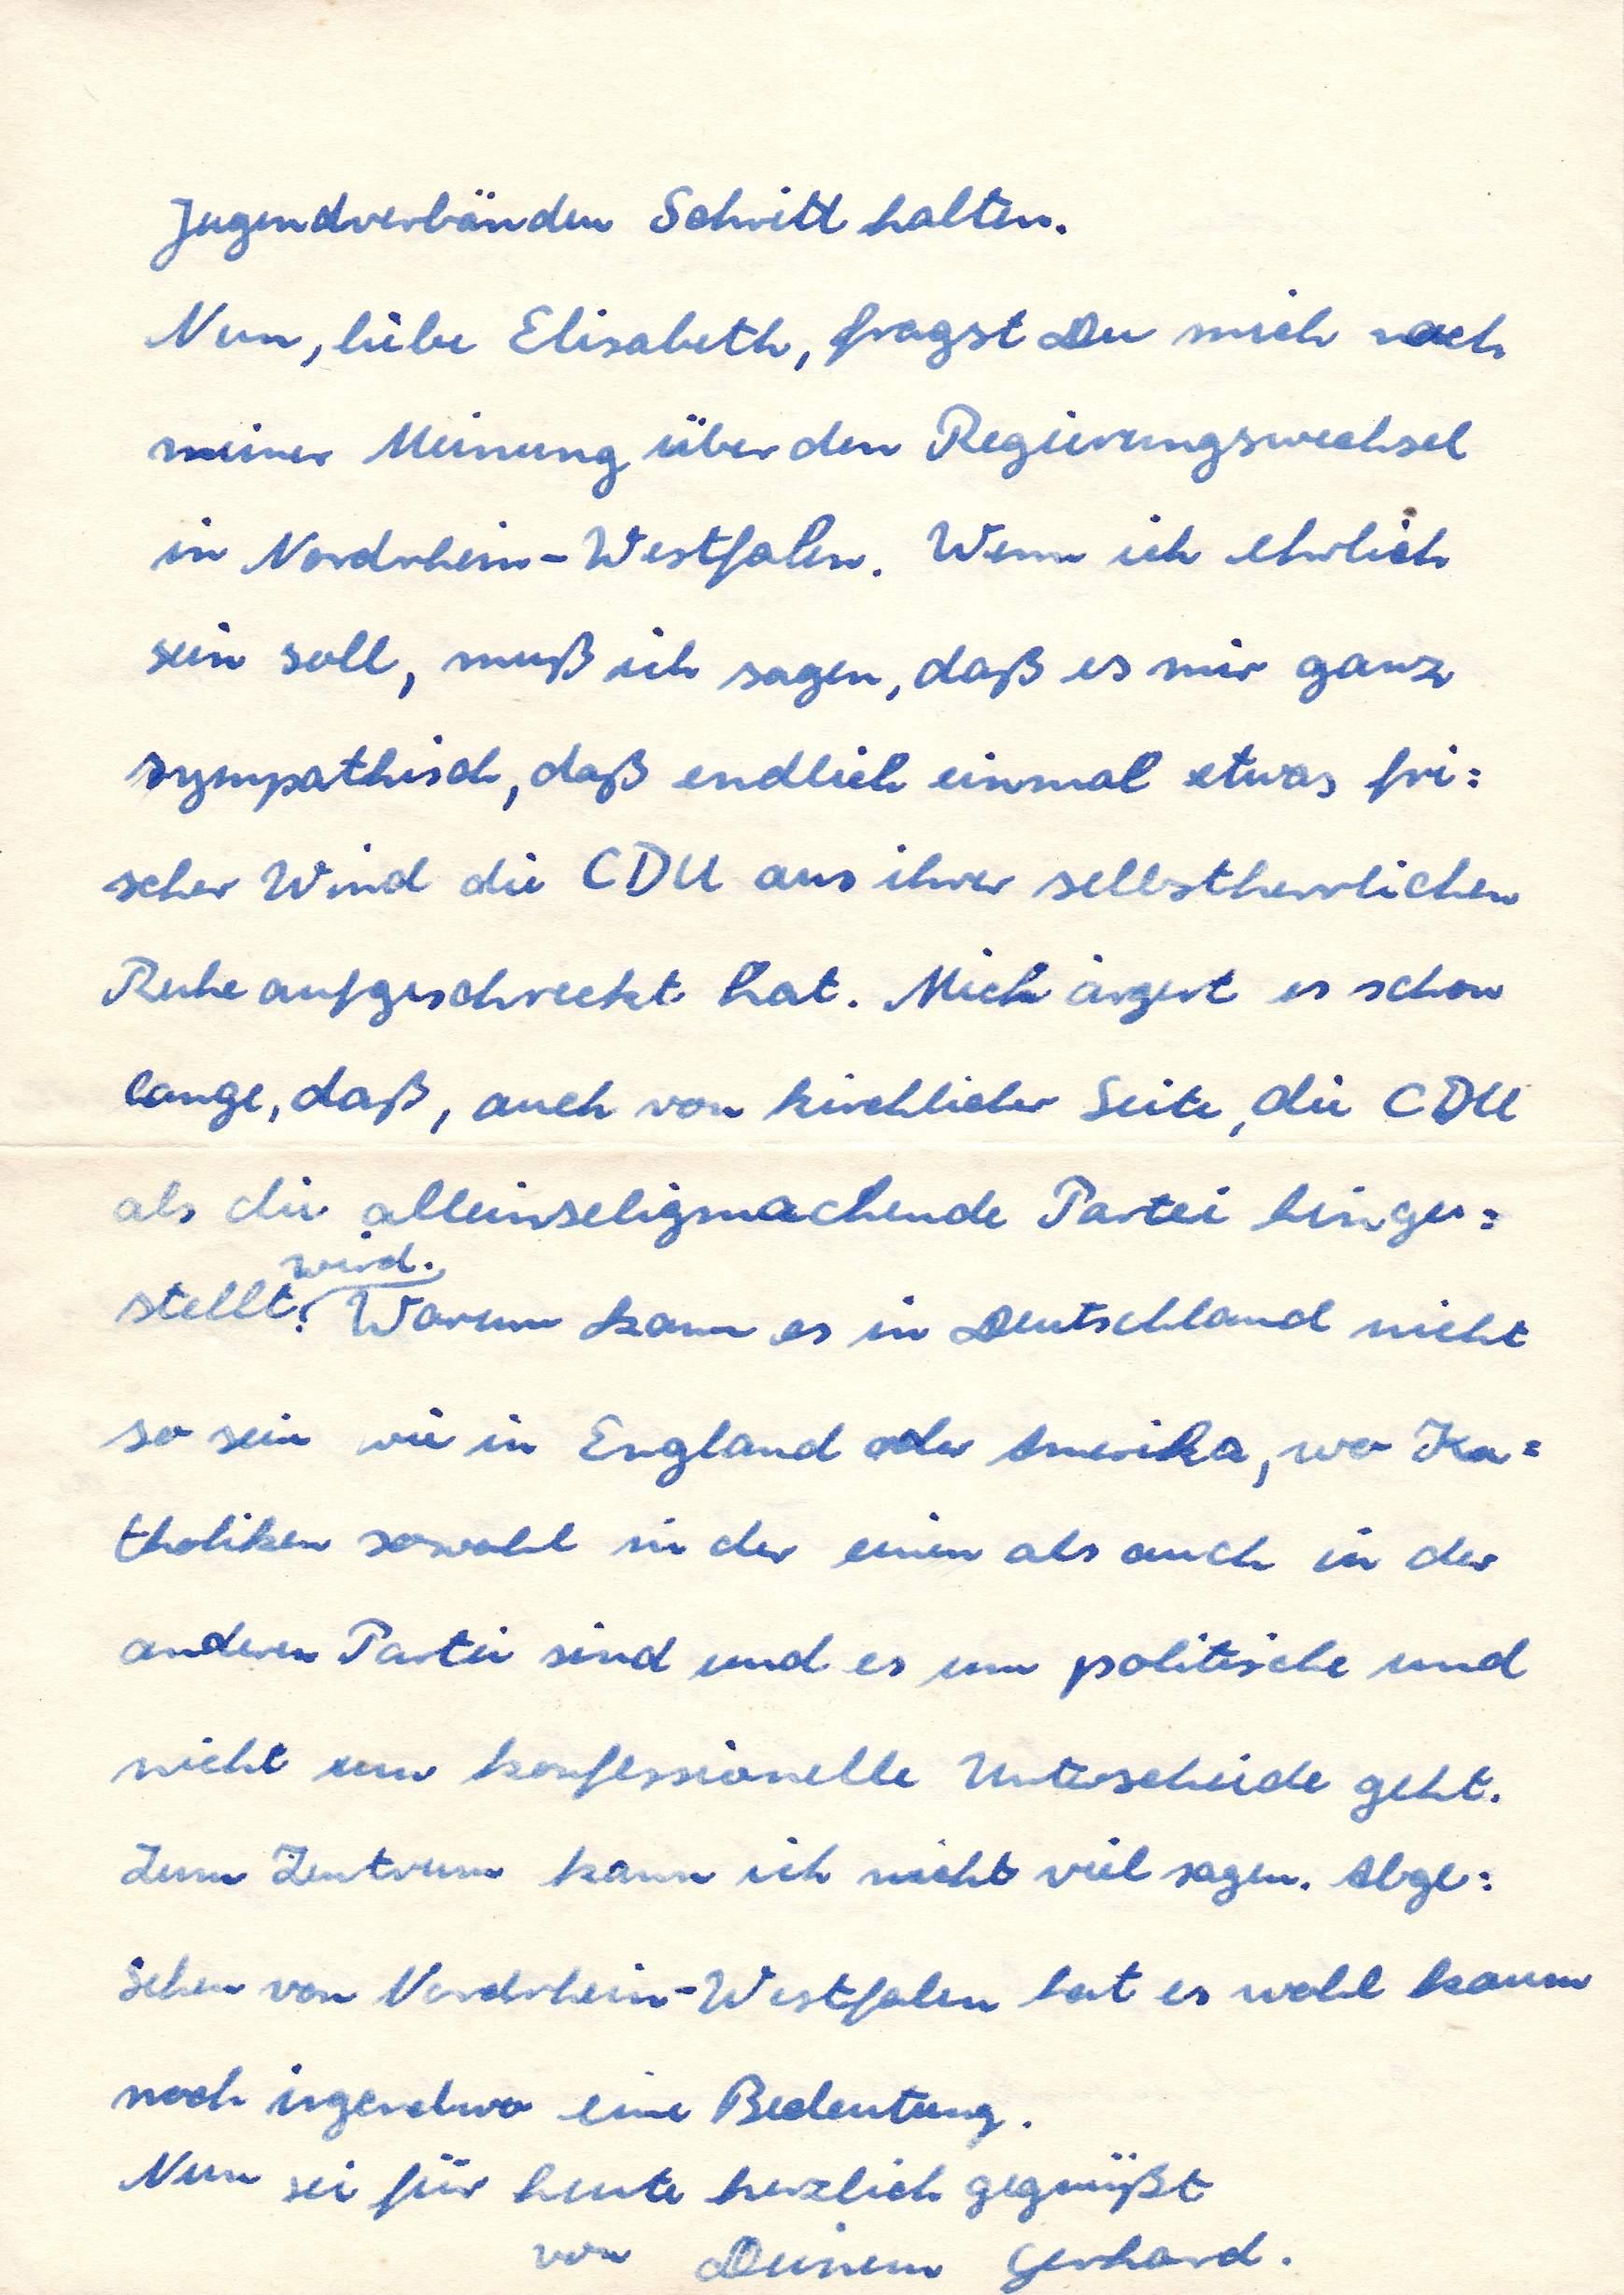 Jugendverbänden Schritt halten.
Nun, liebe Elisabeth, fragst Du mich nach
meiner Meinung über den Regierungswechsel
in Nordrhein-Westfalen. Wenn ich ehrlich
sein soll, muß ich sagen, daß es mir ganz
sympathisch, daß endlich einmal etwas fri=
scher Wind die CDU aus ihrer selbstherrlichen
Ruhe aufgeschreckt hat. Mich ärgert es schon
lange, daß, auch von kirchlicher Seite, die CDU
als die alleinseligmachende Partei hinge=
wird.
stellt. Warum kann es in Deutschland nicht
so sein wie in England oder Amerika, wo Ka=
tholiken sowohl in der einen als auch in der
anderen Partei sind und es um politische und
nicht um konfessionelle Unterscheide geht.
Zum Zentrum kann ich nicht viel sagen. Abge=
sehen von Nordrhein-Westfalen hat es wohl kaum
noch irgendwo eine Bedeutung.
Nun sei für heute herzlich gegrüßt
von Deinem Gerhard.